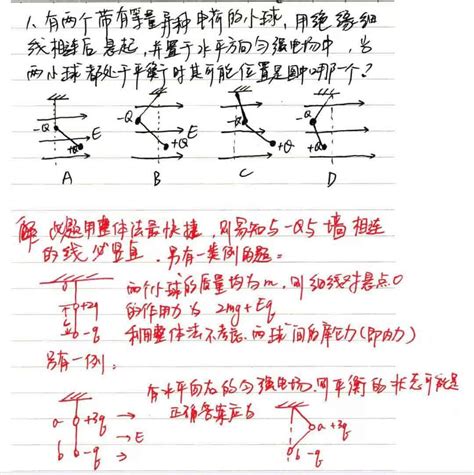 1. 有两个带有等量异种电荷的小球,用绝缘细
线相连后悬起,并置于水平方向匀强电场中,当
两小球都处于平衡时其可能位置是图中哪一个?
-Q E +Q
-Q E +Q
-Q +Q
-Q +Q
A B C D
解 此题用整体法最快捷,则易知与-Q与墙相连
的线必竖直.另有一类例题:
+2q
-q
两个小球的质量均为m,则细线对悬点O
的作用力为 2mg+Eq
利用整体法不考虑.两球间的库仑力(即内力)
另有一例:
有水平向右的匀强电场.则平衡的状态可能是
正确答案应为
a +3q
b -q
E
a +3q
b -q